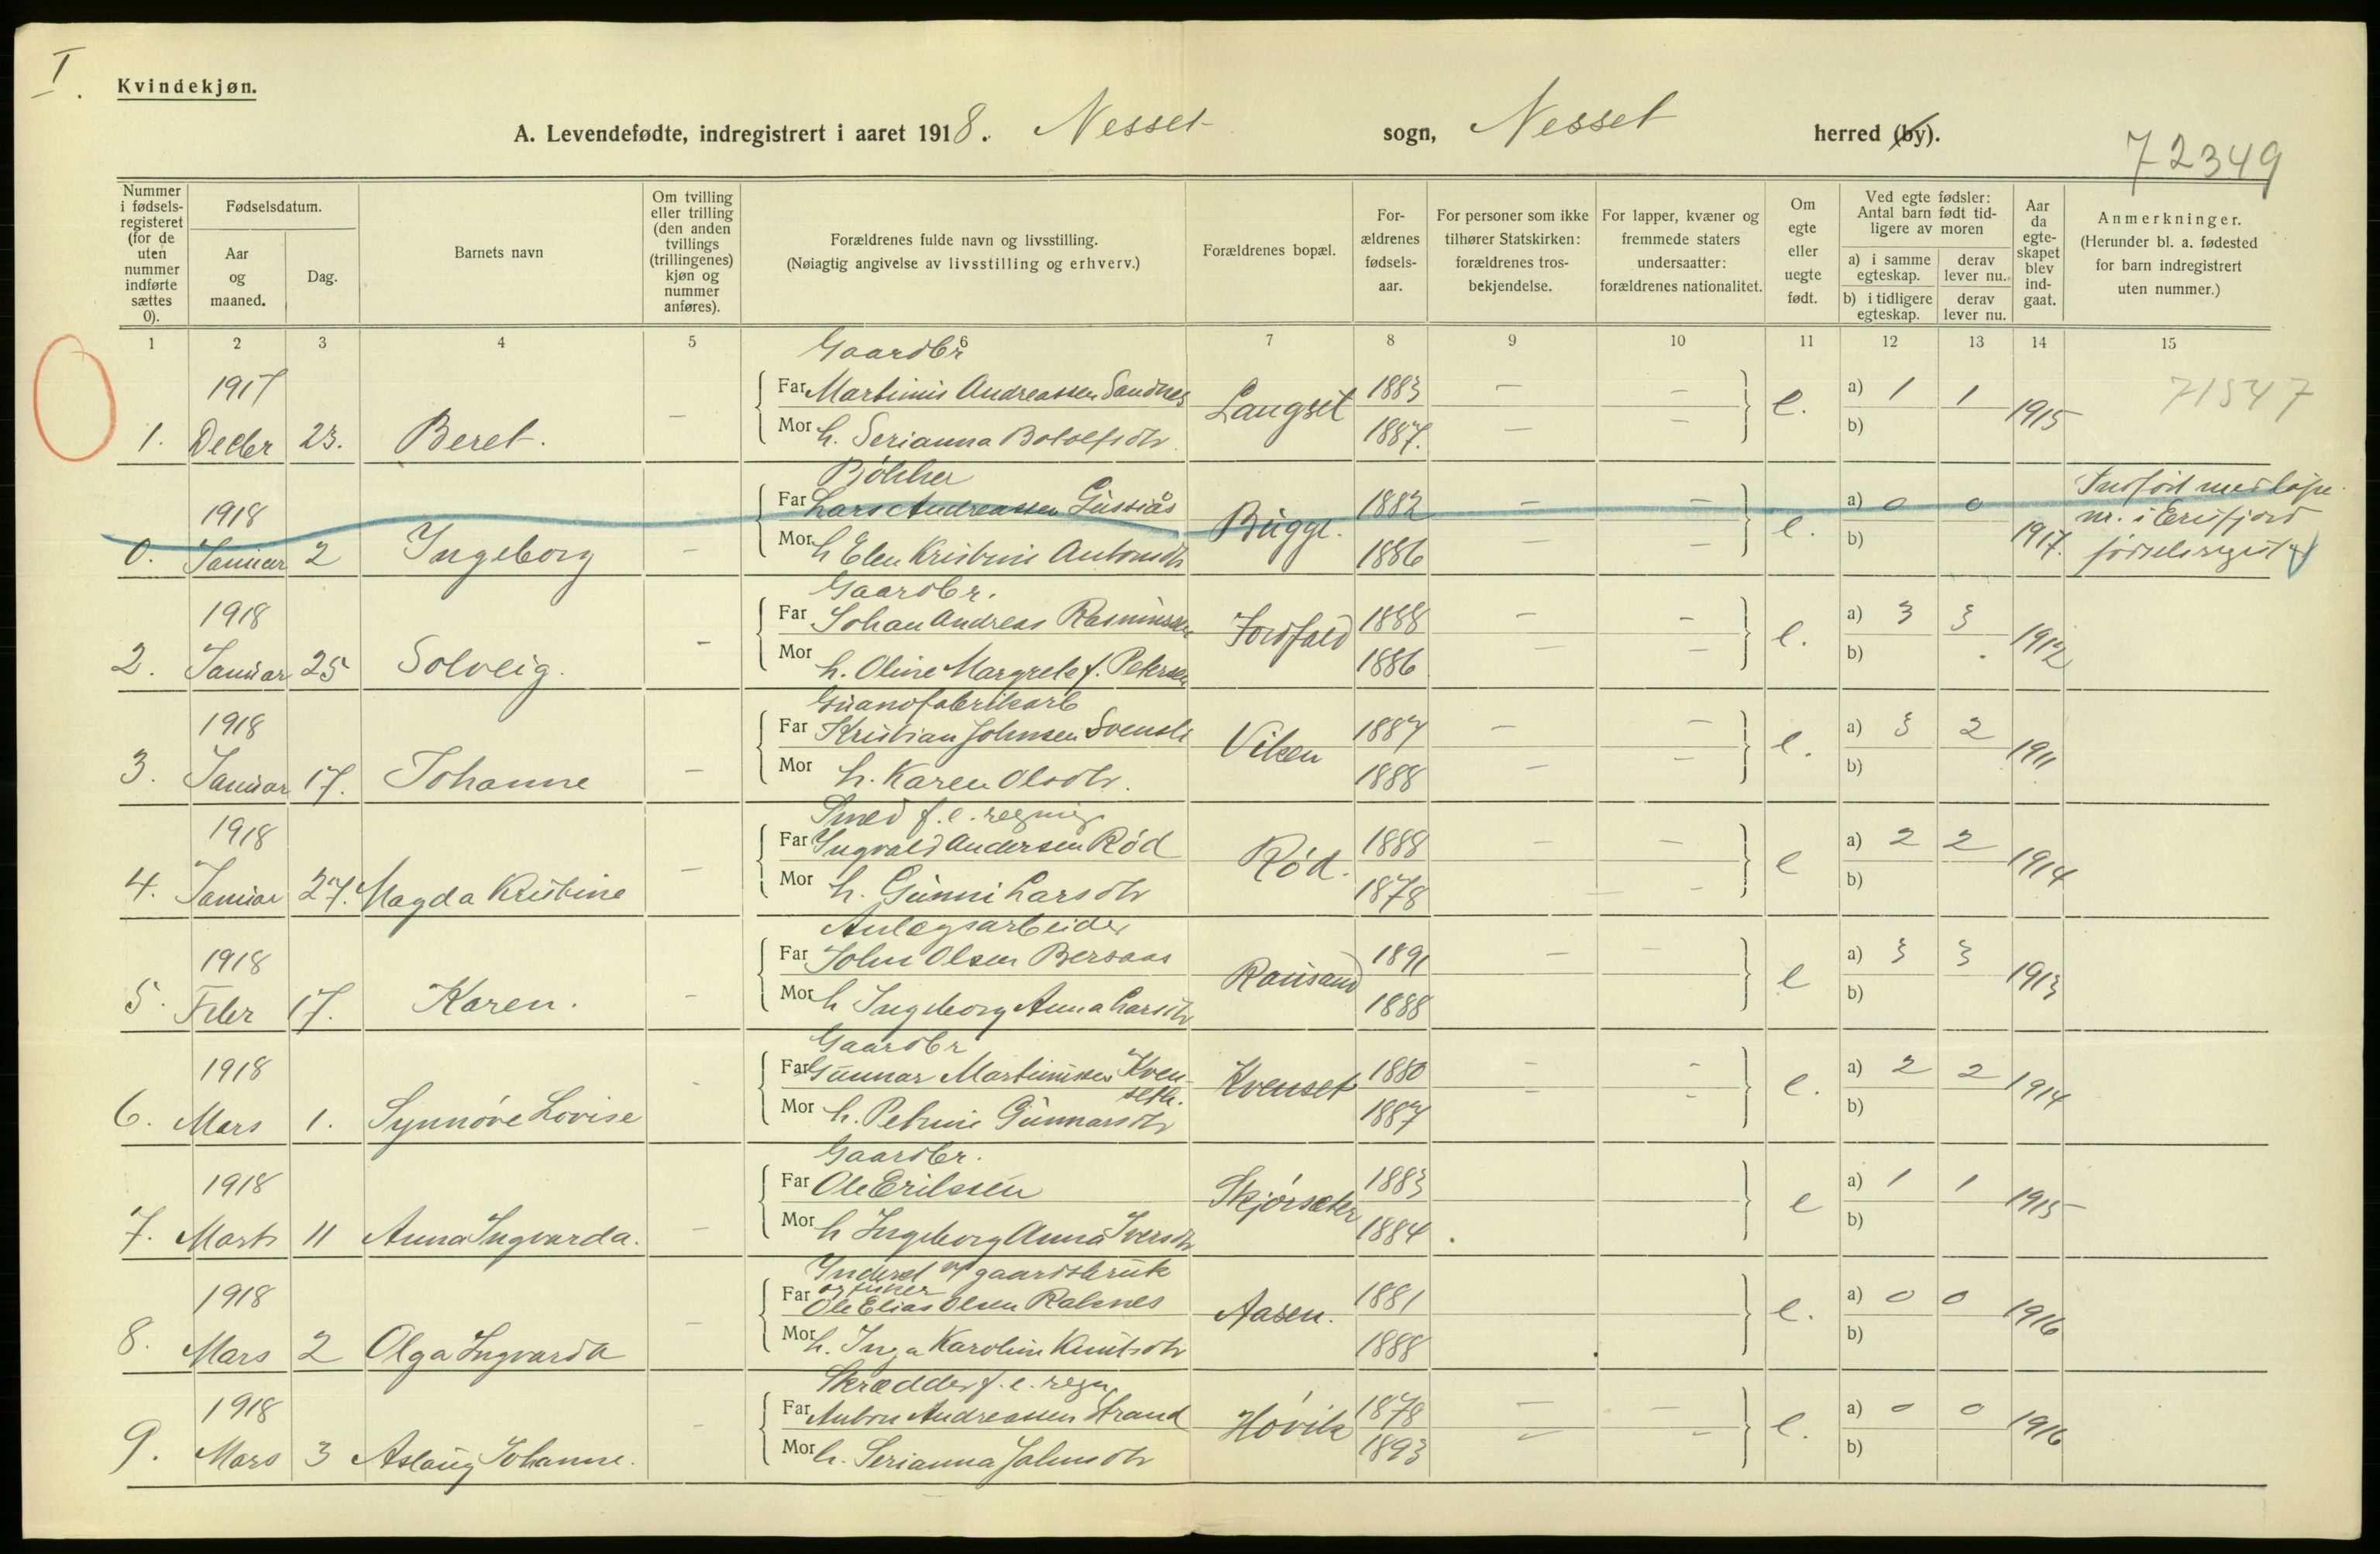 I.
Kvindekjøn.
A. Levendefødte, indregistrert i aaret 1918. Nesset sogn, Nesset herred (by).
72349
Nummer i fødsels-registeret (for de uten nummer indførte sættes 0).
Fødselsdatum.
Aar og maaned.
Dag.
Barnets navn
Om tvilling eller trilling (den anden tvillings (trillingenes) kjøn og nummer anføres).
Forældrenes fulde navn og livsstilling.
(Nøiagtig angivelse av livsstilling og erhverv.)
Forældrenes bopæl.
For-ældrenes fødsels-aar.
For personer som ikke tilhører Statskirken: forældrenes tros-bekjendelse.
For lapper, kvæner og fremmede staters undersaatter: forældrenes nationalitet.
Om egte eller uegte født.
Ved egte fødsler: Antal barn født tid-ligere av moren
a) i samme egteskap.
derav lever nu.
b) i tidligere egteskap.
derav lever nu.
Aar da egte-skapet blev ind-gaat.
Anmerkninger.
(Herunder bl. a. fødested for barn indregistrert uten nummer.)
1 2 3 4 5 6 7 8 9 10 11 12 13 14 15
Gaardbr
1917 Far Martinus Andreassen Sandnes Langset 1883 — — e. a) 1 1 1915 71547
1. Decbr 23. Beret. — Mor h. Serianna Botolfsdtr 1887. — — b)
Bøkker
1918 Far Lars Andreassen Gussiås Bugge. 1882 — — e. a) 0 0 1917. Indført med løpe
nr. i Eresfjord
0. Januar 2 Ingeborg — Mor h Elen Kristine Antonsdtr 1886 — — b) fødselsregister
Gaardbr.
1918 Far Johan Andreas Rasmussen Jordfald 1888 — — e. a) 3 3 1912
2. Januar 25 Solveig. — Mor h. Oline Margrete f. Petersen 1886 — — b)
Guanofabrikarb
1918 Far Kristian Johnsen Svensli Viken 1887 — — e. a) 3 2 1911
3. Januar 17. Johanne — Mor h. Karen Olsdtr. 1888 — — b)
Smed f. e. regning
1918 Far Ingvald Andersen Rød Rød. 1888 — — e a) 2 2 1914
4. Januar 27. Magda Kristine — Mor h. Gunni Larsdtr 1878 — — b)
Anlægsarbeider
1918 Far John Olsen Bersaas Rausand 1891 — — e a) 3 3 1913
5. Febr 17. Karen. — Mor h Ingeborg Anna Larsdtr 1888 b)
Gaardbr
1918 Far Gunnar Martinussen Kven-
seth. Kvenset 1880 — — e. a) 2 2 1914
6. Mars 1. Synnøve Lovise - Mor h. Petrine Gunnarsdtr 1887 — — b)
Gaardbr.
1918 Far Ole Eriksen Skjørsæter 1883 e a) 1 1 1915
7. Marts 11 Anna Ingvarda. — Mor h Ingeborg Anna Iversdtr 1884 b)
gaardsbruk
og fisker
1918 Far Ole Elias Olsen Raknes Aasen. 1881 e. a) 0 0 1916
8. Mars 2 Olga Ingvarda — Mor h. Inga Karoline Knutsdtr 1888 b)
Skrædder f. e. regn
1918 Far Anton Andreassen Strand Hovik 1878 — — e. a) 0 0 1916
9. Mars 3 Aslaug Johanne. - Mor h. Serianna Johnsdtr 1893 — — b)